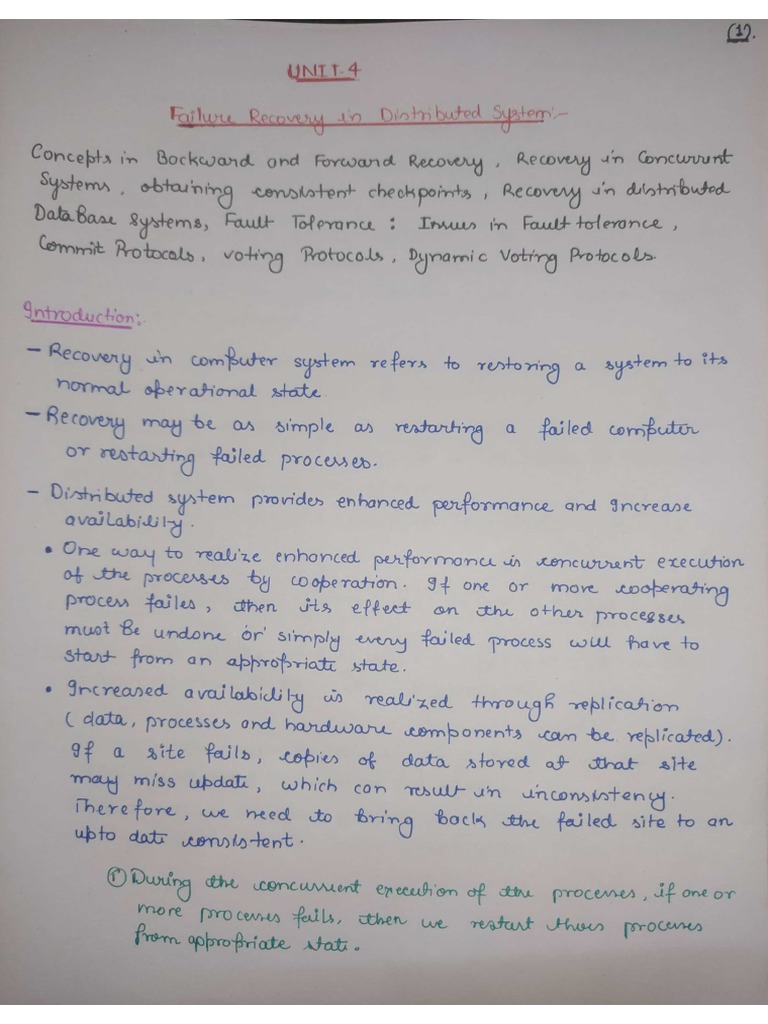 (1).
UNIT-4
Failure Recovery in Distributed System:-
Concepts in Backward and Forward Recovery, Recovery in Concurrent
Systems, obtaining consistent checkpoints, Recovery in distributed
DataBase Systems, Fault Tolerance : Issues in Fault tolerance,
Commit Protocols, voting Protocols, Dynamic Voting Protocols.
Introduction:-
- Recovery in computer system refers to restoring a system to its
normal operational state.
- Recovery may be as simple as restarting a failed computer
or restarting failed processes.
- Distributed system provides enhanced performance and Increase
availability.
• One way to realize enhanced performance is concurrent execution
of the processes by cooperation. If one or more cooperating
process failes, then its effect on the other processes
must Be undone or simply every failed process will have to
start from an appropriate state.
• Increased availability is realized through replication
(data, processes and hardware components can be replicated).
If a site fails, copies of data stored at that site
may miss update, which can result in inconsistency.
Therefore, we need to bring back the failed site to an
upto date consistent.
① During the concurrent execution of the processes, if one or
more processes fails, then we restart thoes processes
from appropriate state.